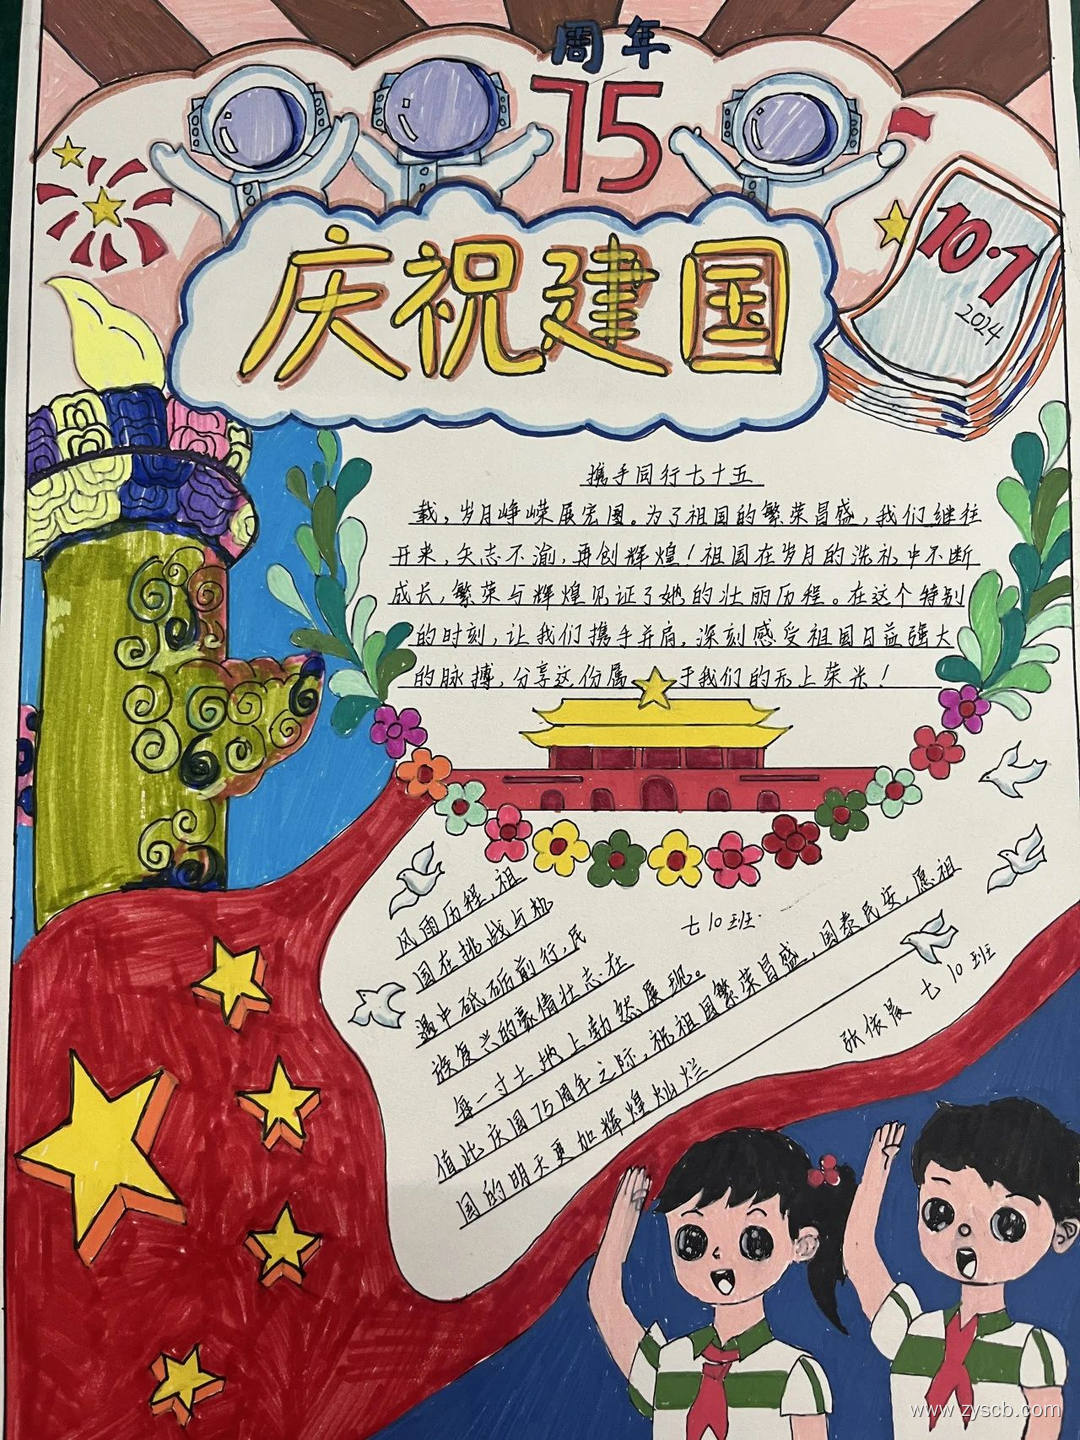 周年
75
庆祝建国
10·1
2024
携手同行七十五
载，岁月峥嵘展宏图。为了祖国的繁荣昌盛，我们继往
开来，矢志不渝，再创辉煌！祖国在岁月的洗礼中不断
成长，繁荣与辉煌见证了她的壮丽历程。在这个特别
的时刻，让我们携手并肩，深刻感受祖国日益强大
的脉搏，分享这份属于我们的无上荣光！
风雨历程，祖
国在挑战与机
遇中砥砺前行，民
族复兴的豪情壮志在
每一寸土地上勃然展现。
值此庆国75周年之际，祝祖国繁荣昌盛，国泰民安，愿祖
国的明天更加辉煌灿烂
七10班
张依晨 七10班
www.zyscb.com